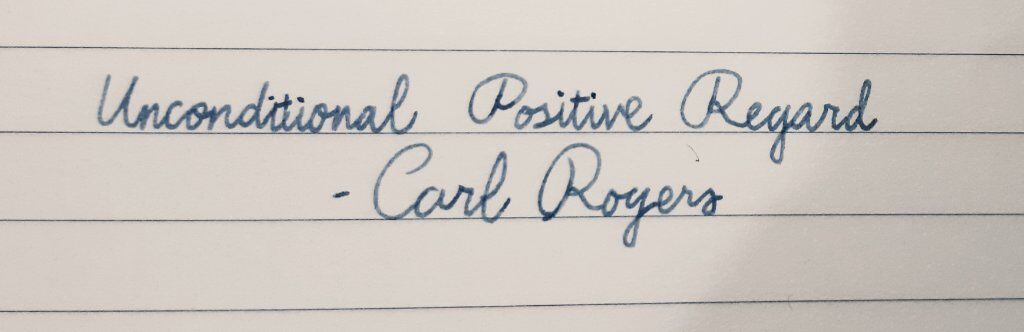 Unconditional Positive Regard
- Carl Rogers